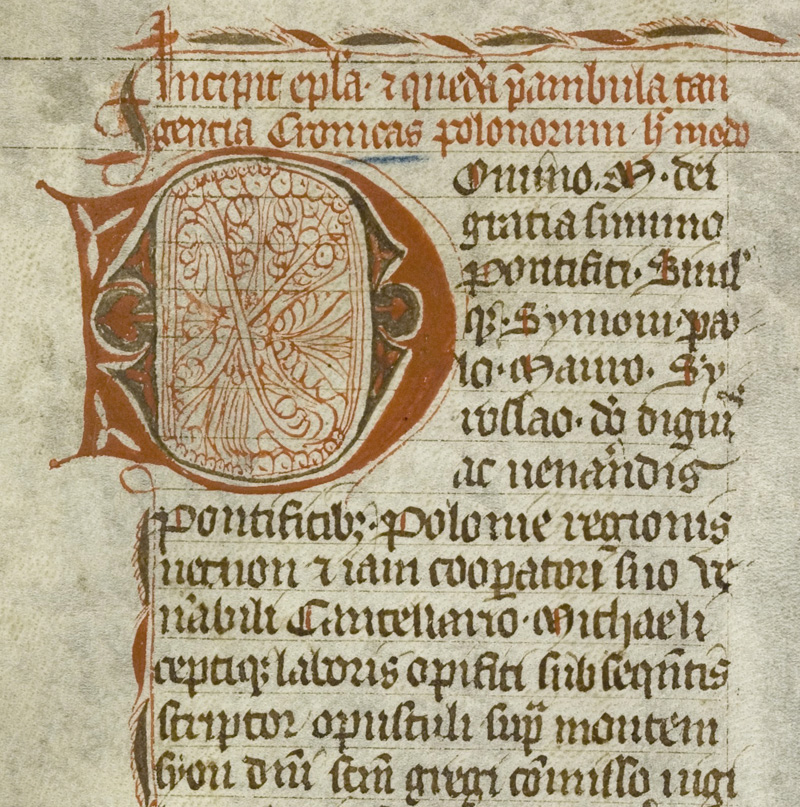 Incipit epl̄a · ⁊ quedā p̄ambula tan
gencia Cronicas polonorum · h̄ modo
Domino · M · dei
gratia summo
pontifici · Simul
qȝ · Symoni · pau
lo · Mauro · Sy
roslao · dō dignis
ac uenandis
pontificibȝ · Polonie regionis
necnon ⁊ iam cooꝑatori suo ve
n̄abili Cancellario · Michaeli
ceptiqȝ laboris opifici subseqn̄tis
scriptor opusculi sup̄ montem
syon dn̄i scm̄ gregi cōmisso uigi